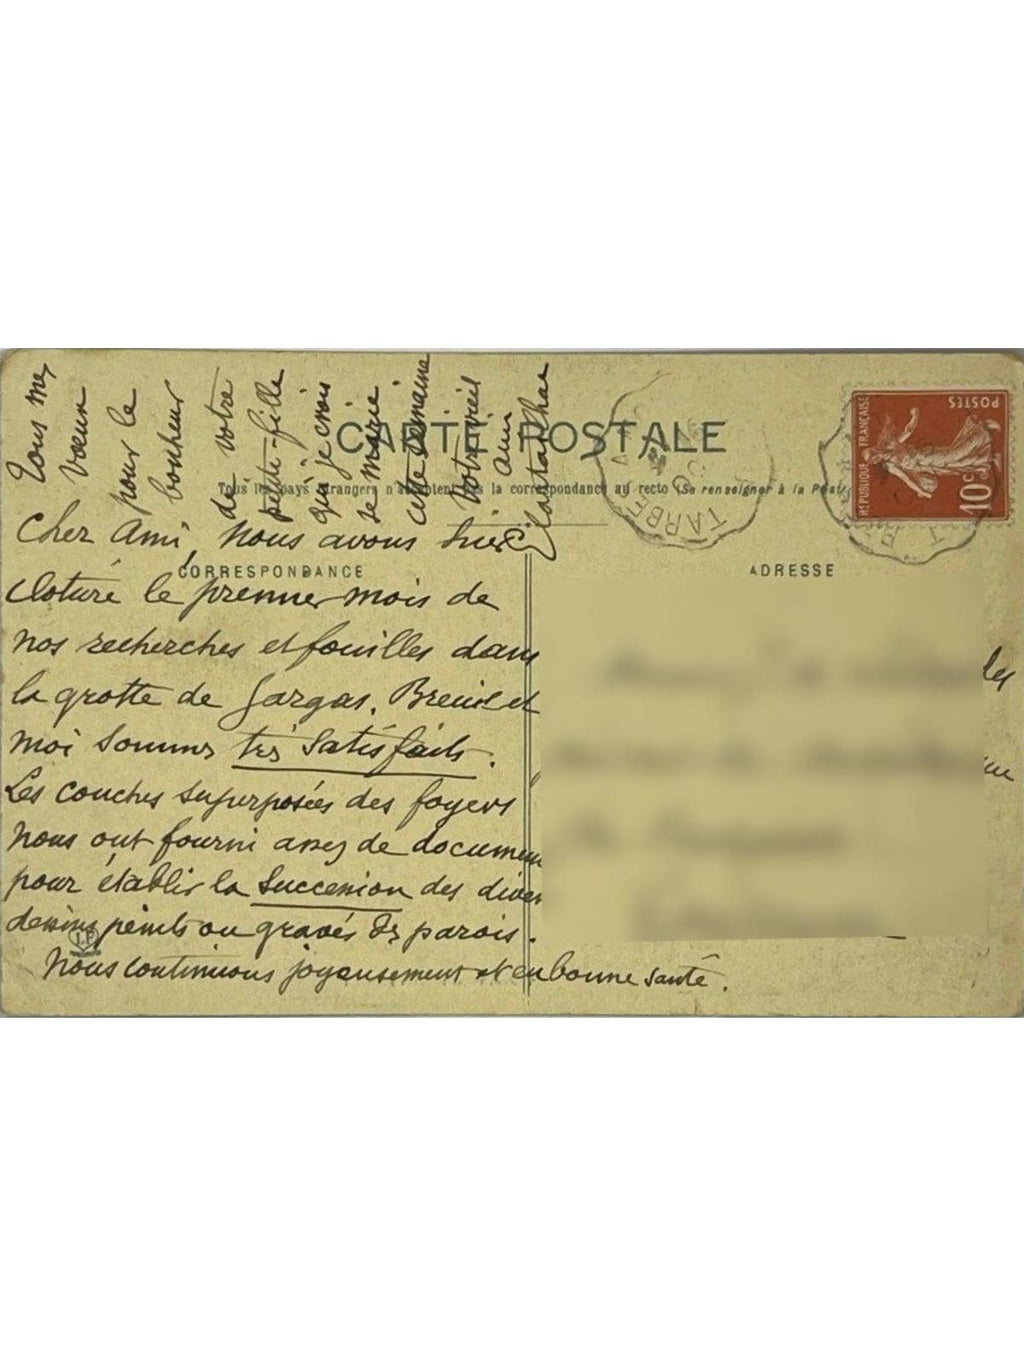 CARTE POSTALE
Tous les pays étrangers n'acceptent pas la correspondance au recto (Se renseigner à la Poste
CORRESPONDANCE
ADRESSE
RÉPUBLIQUE FRANÇAISE
POSTES
10c
TARBES
Cher Ami, nous avons hier
cloturé le premier mois de
nos recherches et fouilles dans
la grotte de Gargas. Breuil et
moi sommes très satisfaits.
Les couches superposées des foyers
nous ont fourni assez de documents
pour établir la succession des divers
dessins peints ou gravés des parois.
Nous continuons joyeusement et en bonne santé.
Tous mes
vœux
pour le
bonheur
de votre
petite-fille
qui je crois
se marie
cette semaine
Votre vieil
ami
Cartailhac